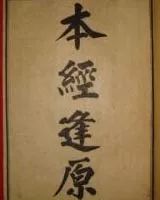 本經逢原